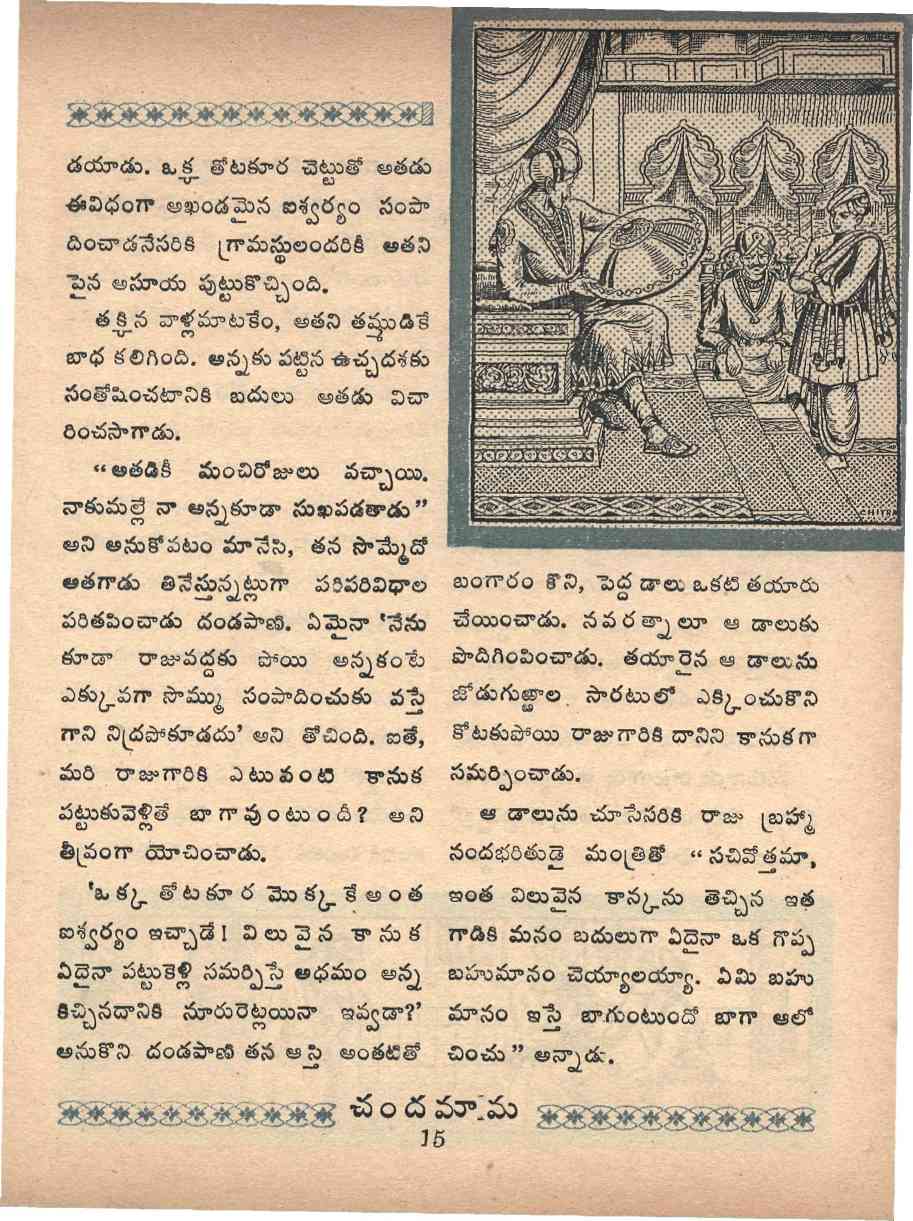 డయాడు. ఒక్క తోటకూర చెట్టుతో అతడు
ఈవిధంగా అఖండమైన ఐశ్వర్యం సంపా
దించాడనేసరికి గ్రామస్థులందరికీ అతని
పైన అసూయ పుట్టుకొచ్చింది.
తక్కిన వాళ్లమాటకేం, అతని తమ్ముడికే
బాధ కలిగింది. అన్నకు పట్టిన ఉచ్చదశకు
సంతోషించటానికి బదులు అతడు విచా
రించసాగాడు.
“అతడికీ మంచిరోజులు వచ్చాయి.
నాకుమల్లే నా అన్నకూడా సుఖపడతాడు”
అని అనుకోవటం మానేసి, తన సొమ్మేదో
అతగాడు తినేస్తున్నట్లుగా పరిపరివిధాల
పరితపించాడు దండపాణి. ఏమైనా ‘నేను
కూడా రాజువద్దకు పోయి అన్నకంటే
ఎక్కువగా సొమ్ము సంపాదించుకు వస్తే
గాని నిద్రపోకూడదు’ అని తోచింది. ఐతే,
మరి రాజుగారికి ఎటువంటి కానుక
పట్టుకువెళ్లితే బాగావుంటుందీ? అని
తీవ్రంగా యోచించాడు.
‘ఒక్క తోటకూర మొక్కకే అంత
ఐశ్వర్యం ఇచ్చాడే! విలువైన కానుక
ఏదైనా పట్టుకెళ్లి సమర్పిస్తే అధమం అన్న
కిచ్చినదానికి నూరురెట్లయినా ఇవ్వడా?’
అనుకొని దండపాణి తన ఆస్తి అంతటితో
CHITRA
బంగారం కొని, పెద్ద డాలు ఒకటి తయారు
చేయించాడు. నవరత్నాలూ ఆ డాలుకు
పొదిగింపించాడు. తయారైన ఆ డాలును
జోడుగుఱ్ఱాల సారటులో ఎక్కించుకొని
కోటకుపోయి రాజుగారికి దానిని కానుకగా
సమర్పించాడు.
ఆ డాలును చూసేసరికి రాజు బ్రహ్మా
నందభరితుడై మంత్రితో “సచివోత్తమా,
ఇంత విలువైన కాన్కను తెచ్చిన ఇత
గాడికి మనం బదులుగా ఏదైనా ఒక గొప్ప
బహుమానం చెయ్యాలయ్యా. ఏమి బహు
మానం ఇస్తే బాగుంటుందో బాగా ఆలో
చించు” అన్నాడు.
చందమామ
15